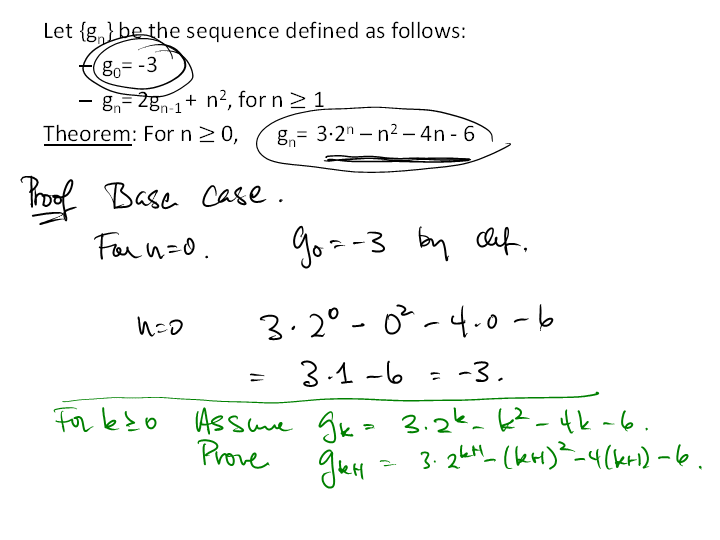 Let {gₙ} be the sequence defined as follows:
– g₀= -3
– gₙ= 2gₙ₋₁ + n², for n ≥ 1
Theorem: For n ≥ 0, gₙ= 3·2ⁿ – n² – 4n - 6
Proof Base case.
For n=0. g₀ = -3 by def.
n=0 3·2⁰ - 0² - 4·0 - 6
= 3·1 - 6 = -3.
For k≥0 Assume gₖ = 3·2ᵏ - k² - 4k - 6.
Prove gₖ₊₁ = 3·2ᵏ⁺¹ - (k+1)² - 4(k+1) - 6.